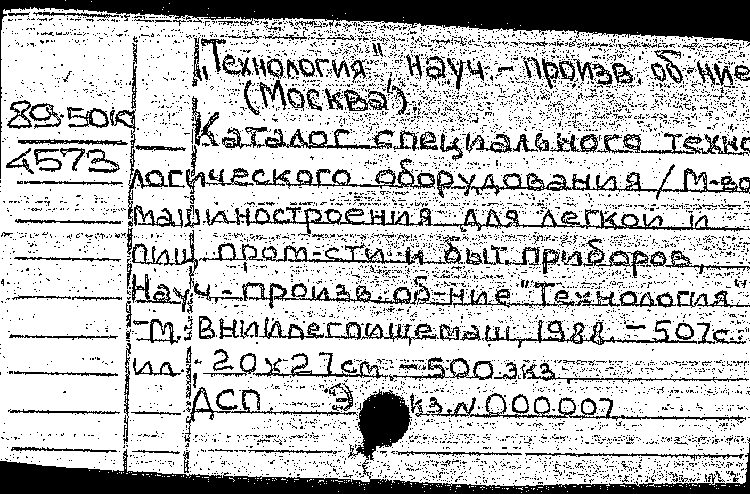 „Технология", науч.-произв. об-ние
(Москва).
89.50к
Каталог специального техно
4573
логического оборудования / М-во
машиностроения для легкой и
пищ. пром-сти и быт. приборов,
Науч.-произв. об-ние "Технология"
-М.: ВНИИлегпищемаш, 1988. - 507с.:
ил.; 20х27см. - 500 экз.
ДСП. Экз.N 000007